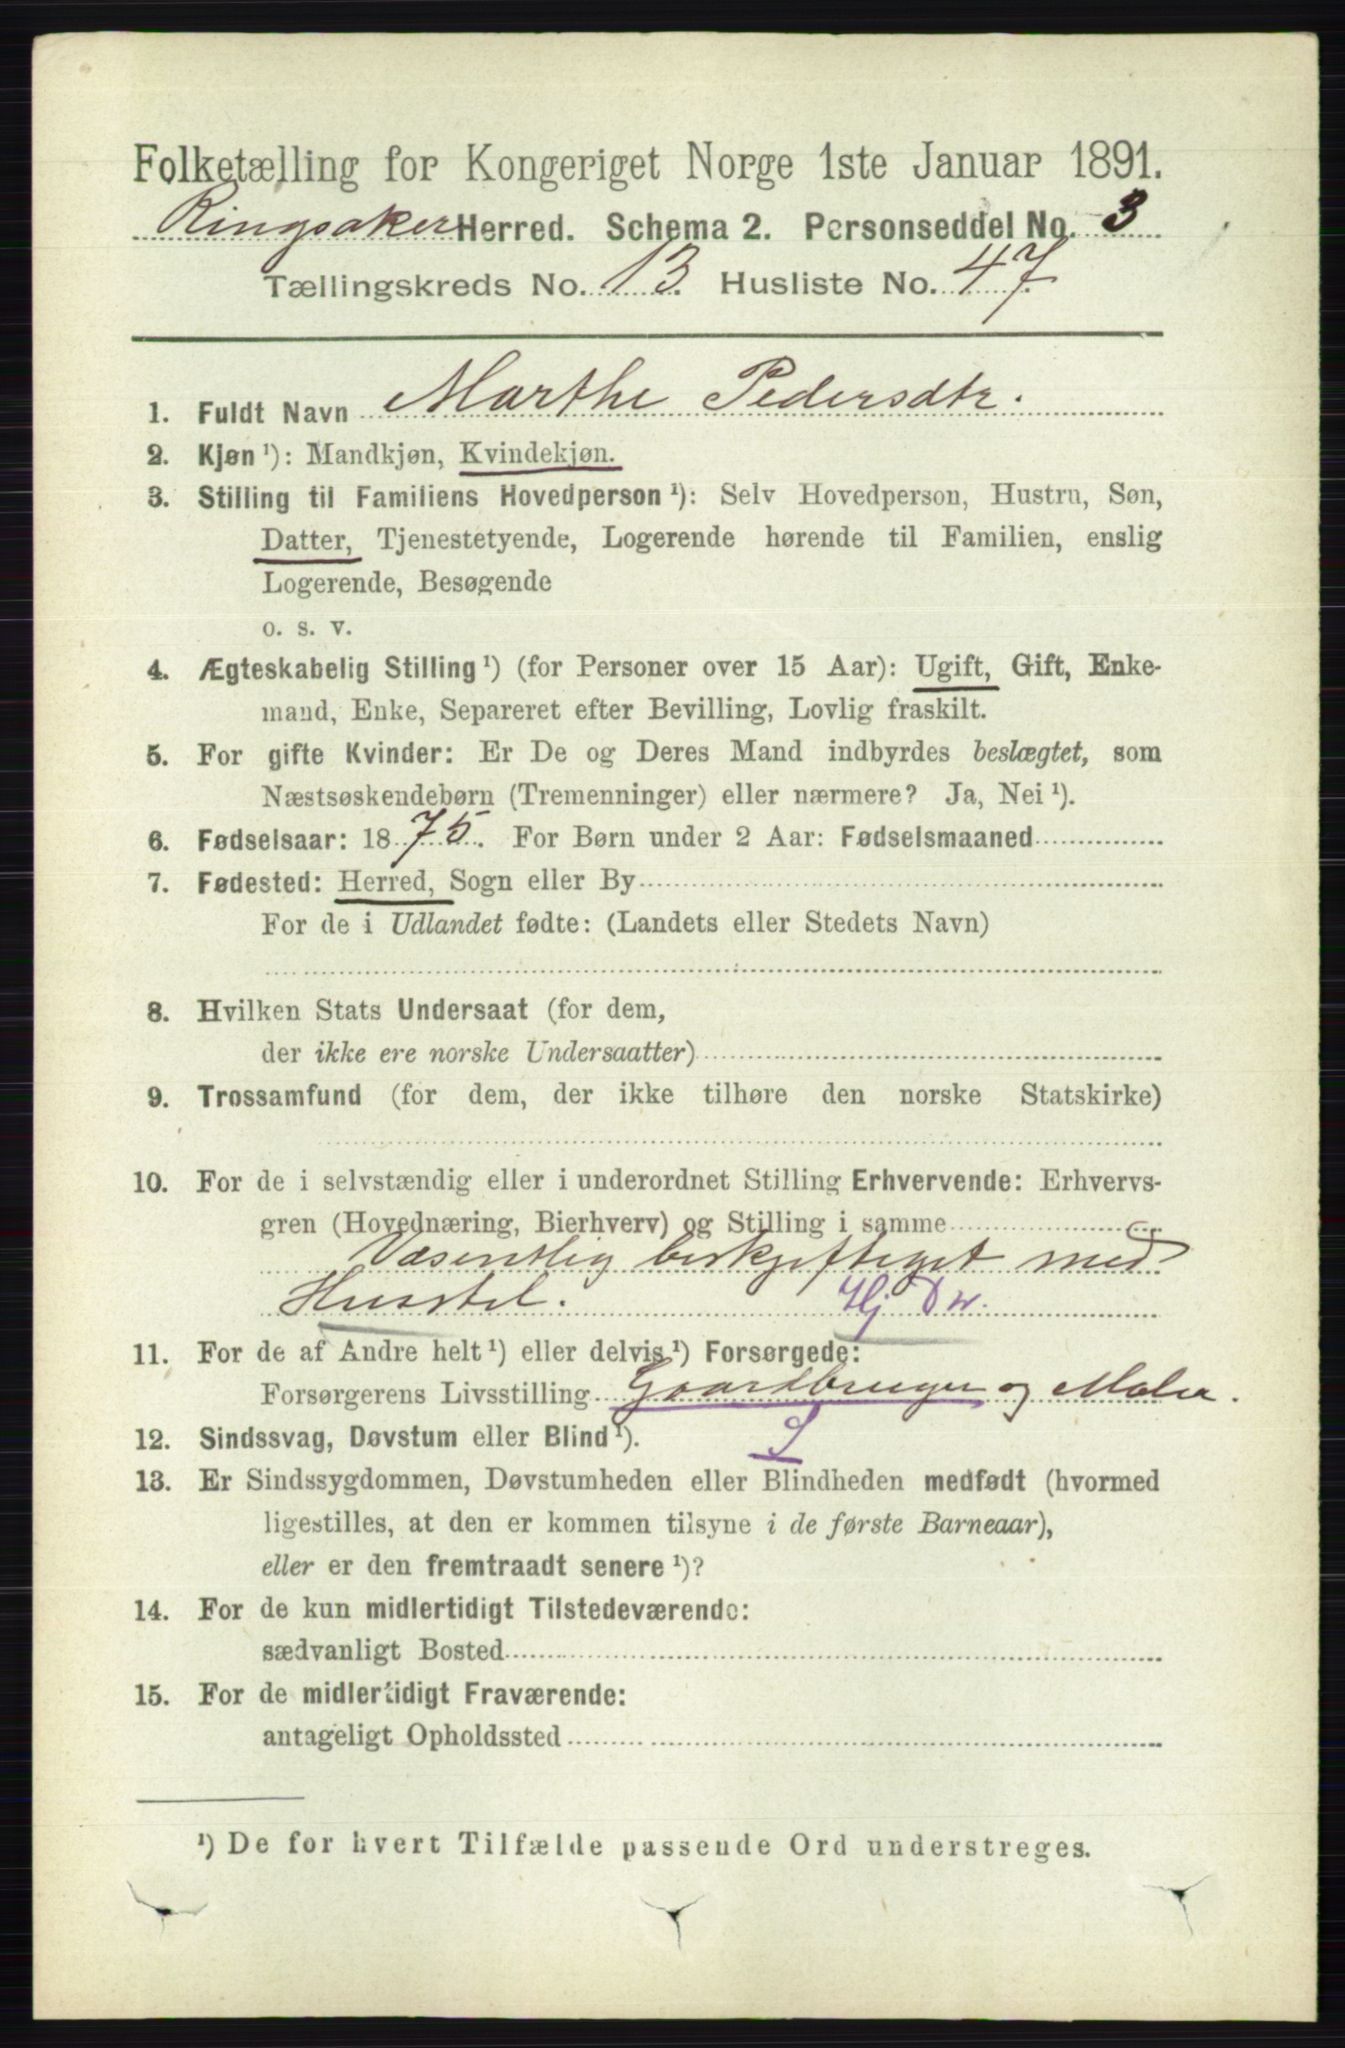 Folketælling for Kongeriget Norge 1ste Januar 1891.
Ringsaker Herred. Schema 2. Personseddel No. 3
Tællingskreds No. 13. Husliste No. 47
1. Fuldt Navn Marthe Pedersdtr.
2. Kjøn ¹): Mandkjøn, Kvindekjøn.
3. Stilling til Familiens Hovedperson ¹): Selv Hovedperson, Hustru, Søn,
Datter, Tjenestetyende, Logerende hørende til Familien, enslig
Logerende, Besøgende
o. s. v.
4. Ægteskabelig Stilling ¹) (for Personer over 15 Aar): Ugift, Gift, Enke-
mand, Enke, Separeret efter Bevilling, Lovlig fraskilt.
5. For gifte Kvinder: Er De og Deres Mand indbyrdes beslægtet, som
Næstsøskendebørn (Tremenninger) eller nærmere? Ja, Nei ¹).
6. Fødselsaar: 1875. For Børn under 2 Aar: Fødselsmaaned
7. Fødested: Herred, Sogn eller By
For de i Udlandet fødte: (Landets eller Stedets Navn)
8. Hvilken Stats Undersaat (for dem,
der ikke ere norske Undersaatter)
9. Trossamfund (for dem, der ikke tilhøre den norske Statskirke)
10. For de i selvstændig eller i underordnet Stilling Erhvervende: Erhvervs-
gren (Hovednæring, Bierhverv) og Stilling i samme
Væsentlig beskjeftiget med
Husstel. Hj Dtr.
11. For de af Andre helt ¹) eller delvis ¹) Forsørgede:
Forsørgerens Livsstilling Gaardbruger og Maler.
12. Sindssvag, Døvstum eller Blind ¹). S
13. Er Sindssygdommen, Døvstumheden eller Blindheden medfødt (hvormed
ligestilles, at den er kommen tilsyne i de første Barneaar),
eller er den fremtraadt senere ¹)?
14. For de kun midlertidigt Tilstedeværende:
sædvanligt Bosted
15. For de midlertidigt Fraværende:
antageligt Opholdssted
¹) De for hvert Tilfælde passende Ord understreges.